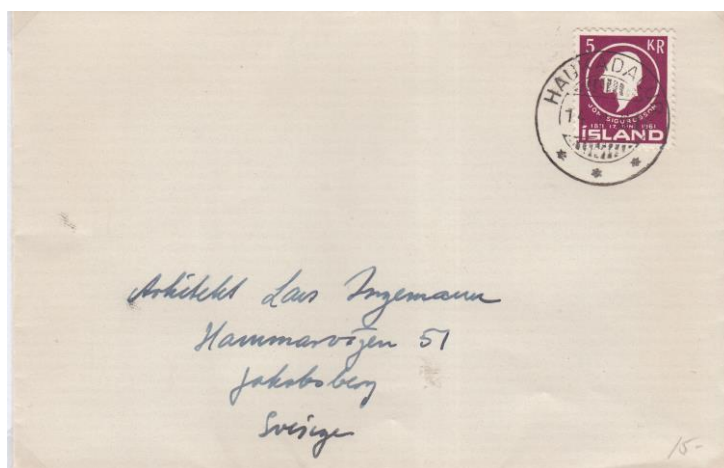 5 KR
JÓN SIGURÐSSON
1811 17. JÚNÍ 1961
ÍSLAND
Arkitekt Lars Ingemann
Hammarvägen 51
Jakobsberg
Sverige
15-